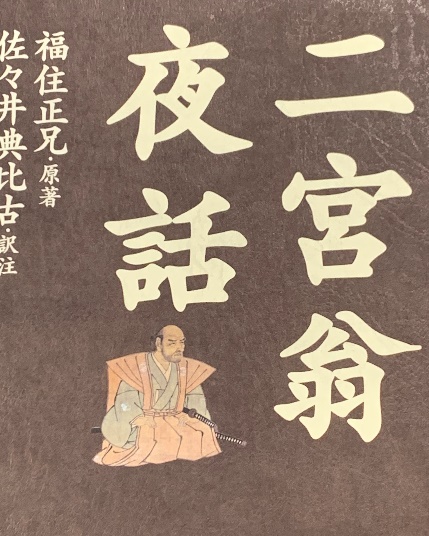 二宮翁
夜話
福住正兄・原著
佐々井典比古・訳注